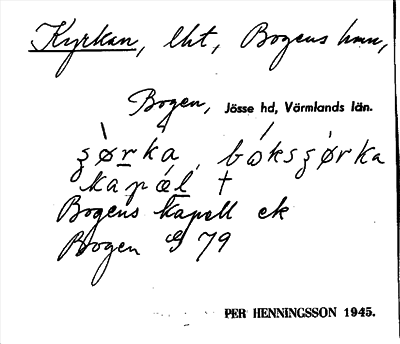 Kyrkan, lht, Bogens hmn,
Bogen, Jösse hd, Värmlands län.
kapæl †
Bogens kapell ek
Bogen 79
PER HENNINGSSON 1945.